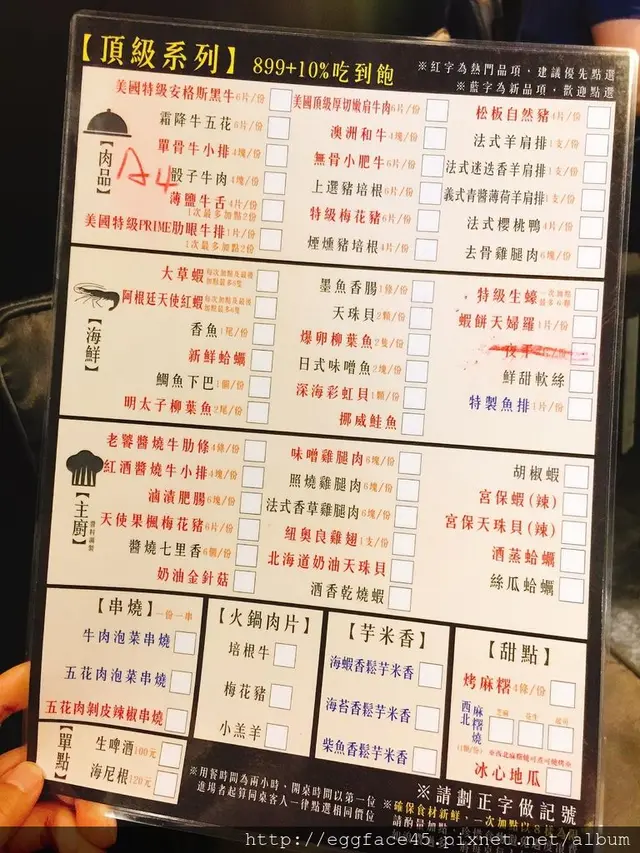 【頂級系列】 899+10%吃到飽
※紅字為熱門品項，建議優先點選
※藍字為新品項，歡迎點選
【肉品】
A4
美國特級安格斯黑牛6片/份
霜降牛五花6片/份
單骨牛小排4塊/份
骰子牛肉4塊/份
薄鹽牛舌4片/份
1次最多加點2份
美國特級PRIME肋眼牛排1片/份
1次最多加點2份
美國頂級厚切嫩肩牛肉6片/份
澳洲和牛4塊/份
無骨小肥牛6片/份
上選豬培根6片/份
特級梅花豬6片/份
煙燻豬培根4片/份
松板自然豬4片/份
法式羊肩排1支/份
法式迷迭香羊肩排1支/份
義式青醬薄荷羊肩排1支/份
法式櫻桃鴨4片/份
去骨雞腿肉6塊/份
【海鮮】
大草蝦
阿根廷天使紅蝦
香魚1尾/份
新鮮蛤蠣
鯛魚下巴1個/份
明太子柳葉魚2尾/份
墨魚香腸1條/份
天珠貝2顆/份
爆卵柳葉魚2隻/份
日式味噌魚2塊/份
深海彩虹貝1顆/份
挪威鮭魚
特級生蠔
蝦餅天婦羅1片/份
鮮甜軟絲
特製魚排1片/份
【主廚】
醬料調製
老饕醬燒牛肋條4條/份
紅酒醬燒牛小排4塊/份
滷漬肥腸6塊/份
天使果楓梅花豬6片/份
醬燒七里香6個/份
奶油金針菇
味噌雞腿肉6塊/份
照燒雞腿肉6塊/份
法式香草雞腿肉6塊/份
紐奧良雞翅1支/份
北海道奶油天珠貝
酒香乾燒蝦
胡椒蝦
宮保蝦(辣)
宮保天珠貝(辣)
酒蒸蛤蠣
絲瓜蛤蠣
【串燒】一份一串
牛肉泡菜串燒
五花肉泡菜串燒
五花肉剝皮辣椒串燒
【火鍋肉片】
培根牛
梅花豬
小羔羊
【芋米香】
海蝦香鬆芋米香
海苔香鬆芋米香
柴魚香鬆芋米香
【甜點】
烤麻糬4條/份
西北麻糬燒
芝麻 花生
冰心地瓜
【單點】
生啤酒100元
海尼根120元
※用餐時間為兩小時，開桌時間以第一位
進場者起算同桌客人一律點選相同價位
※請劃正字做記號
※確保食材新鮮，一次加點以8樣為
http://eggface45.pixnet.net/album